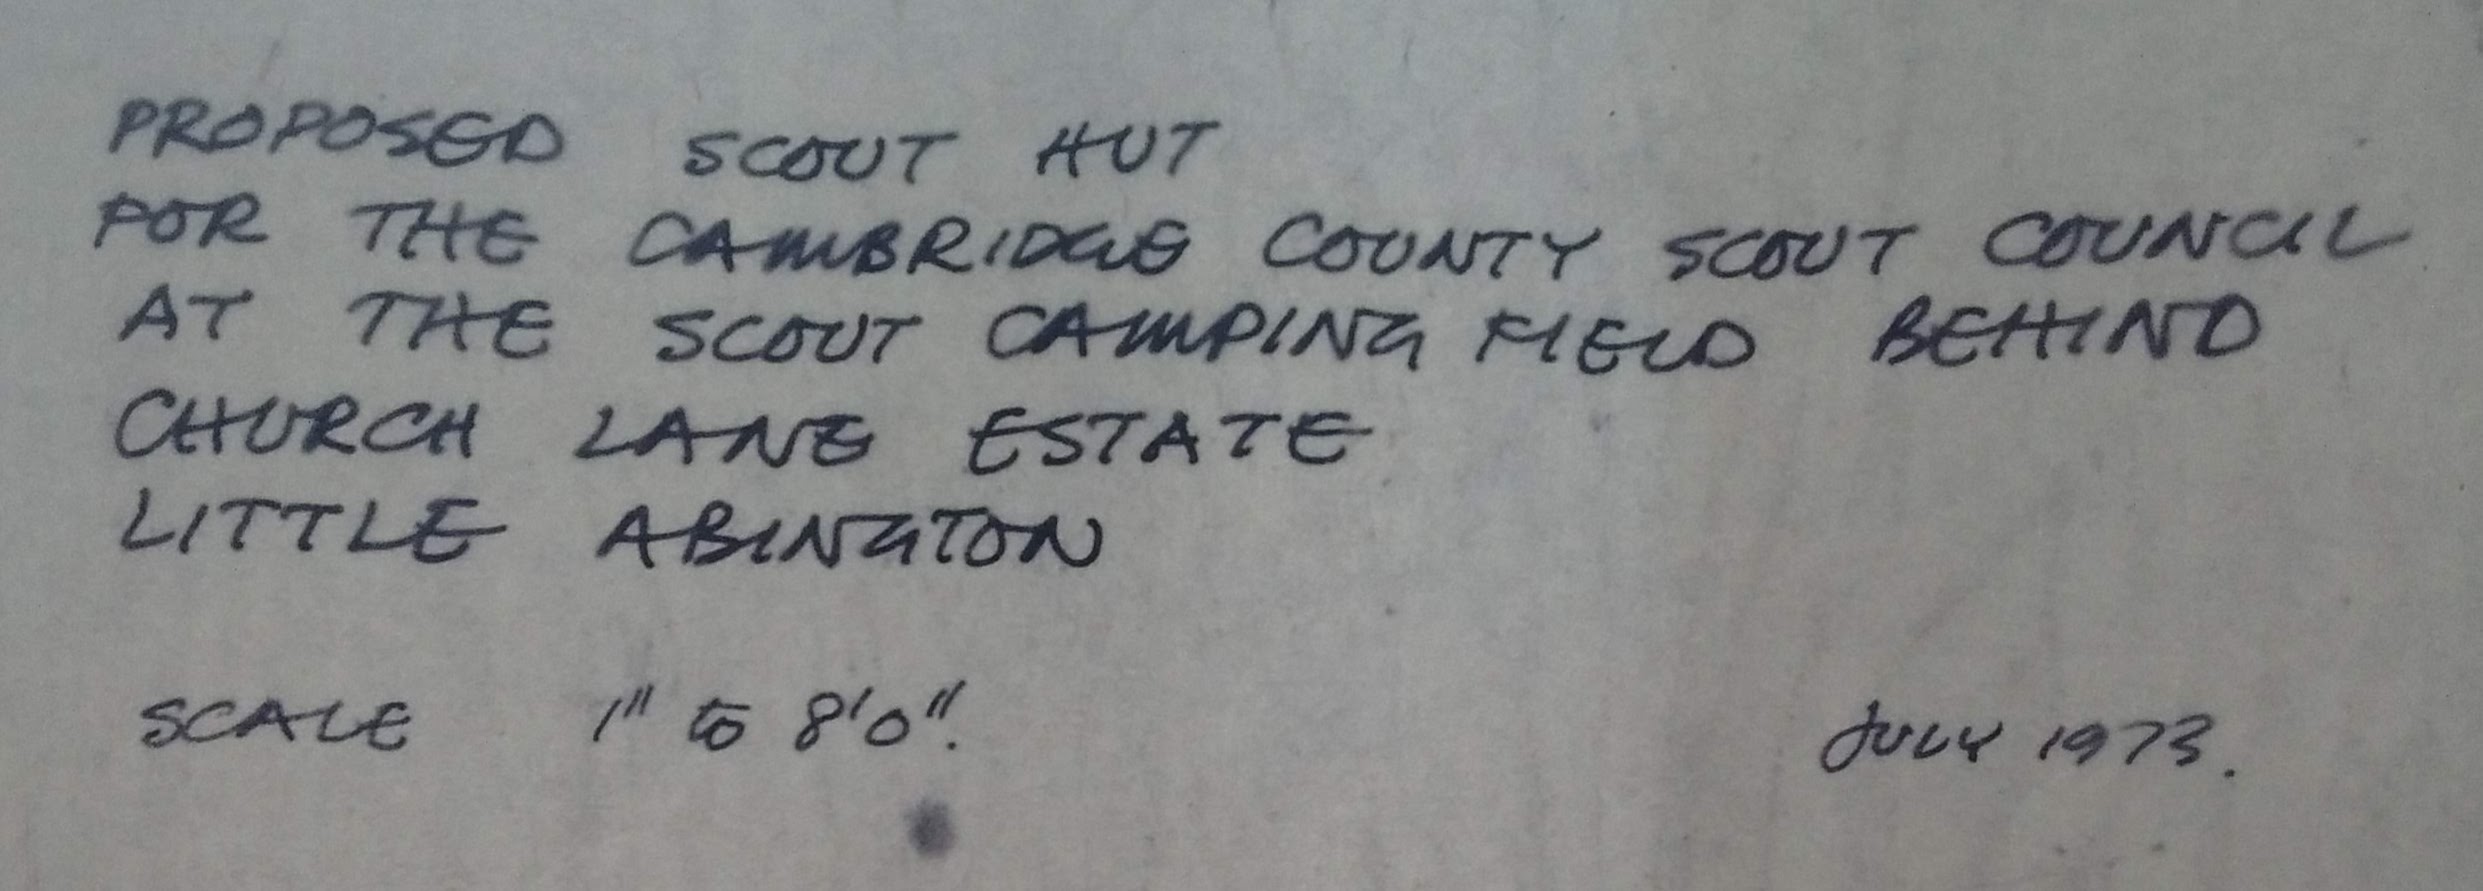 PROPOSED SCOUT HUT
FOR THE CAMBRIDGE COUNTY SCOUT COUNCIL
AT THE SCOUT CAMPING FIELD BEHIND
CHURCH LANE ESTATE
LITTLE ABINGTON
SCALE 1" to 8'0". JULY 1973.